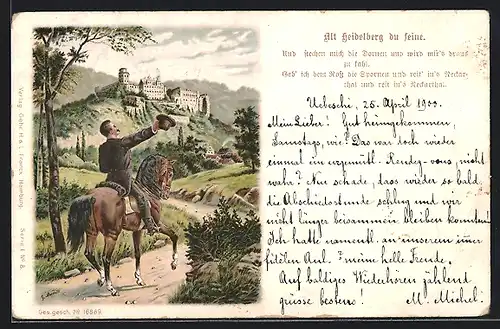 Alt Heidelberg du feine.
Und stechen mich die Dornen und wird mir's draus
zu kahl.
Geb' ich dem Roß die Spornen und reit' in's Neckar-
thal und reit in's Neckarthal.
Uebeschi, 25. April 1900.
Mein Lieber! Gut heimgekommen,
Samstags, wie? Das war doch wieder
einmal ein urgemütl. Rendez-vous, nicht
wahr? Nur schade, dass wieder so bald
die Abschiedsstunde schlug und wir
nicht länger beisammen bleiben konnten.
Ich hatte namentl. an unserem immer
fidelen Auf. ? meine helle Freude.
Auf baldiges Wiederhören zählend
grüsse bestens! M. Michel.
Verlag Gebr. H. & L. Franck, Hamburg. Serie I. Nº 8.
Ges. gesch. Nº 16869